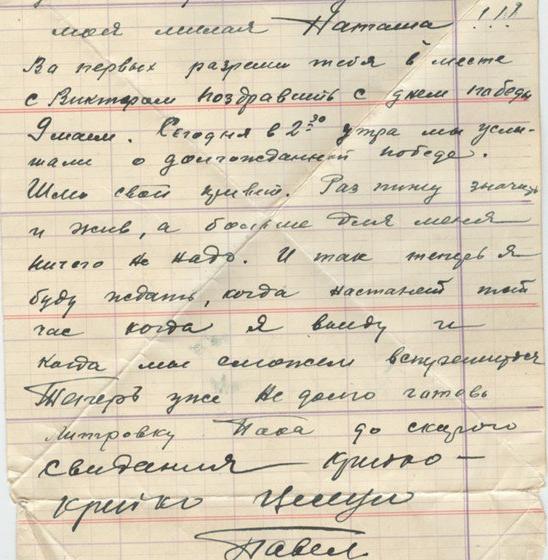 моя милая Наташа !!!
Во первых разреши тебя в месте
с Виктором поздравить с днем победы
9 маем. Сегодня в 2 30 утра мы услы-
шали о долгожданной победе.
Шлю свой привет. Раз пишу значит
и жив, а больше для меня
ничего не надо. И так теперь я
буду ждать, когда настанет тот
час когда я выйду и
когда мы сможем встретиться
Теперь уже не долго готовь
литровку Пока до скорого
свидания крепко-
крепко целую
Павел